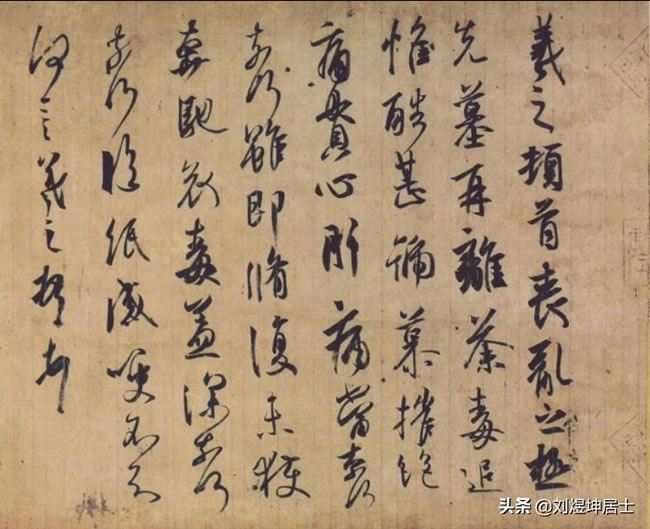 羲之頓首喪亂之極
先墓再離荼毒追
惟酷甚號慕摧絕
痛貫心肝痛當奈何
奈何雖即脩復未獲
奔馳哀毒益深奈何
奈何臨紙感哽不知
何言羲之頓首頓首
头条 @刘煜坤居士